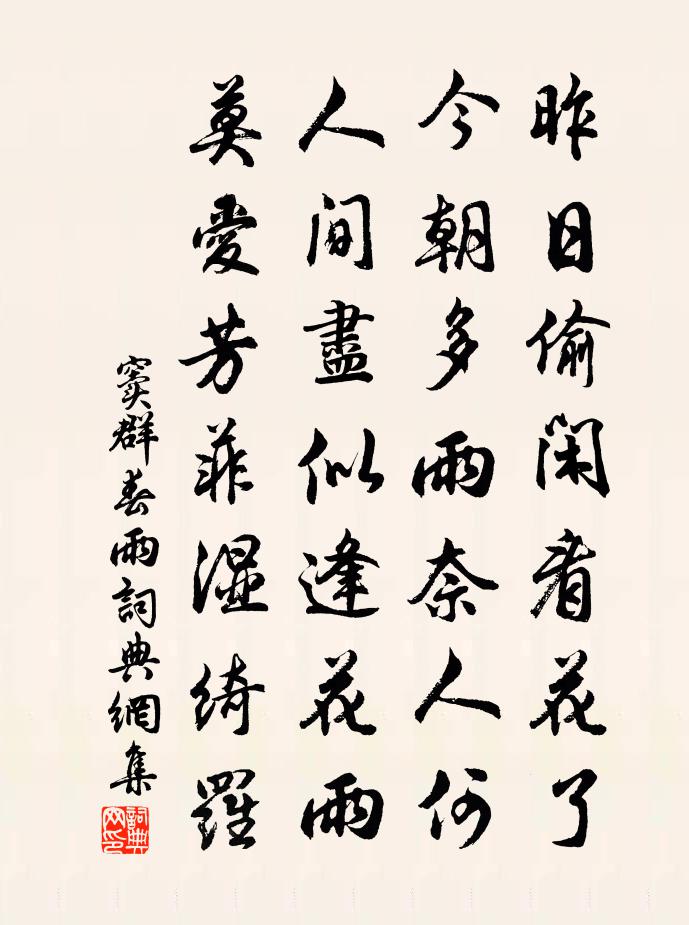 昨日偷閑看花了
今朝多雨奈人何
人間盡似逢花雨
莫愛芳菲湿綺羅
竇群春雨詞典網集
詞典网印